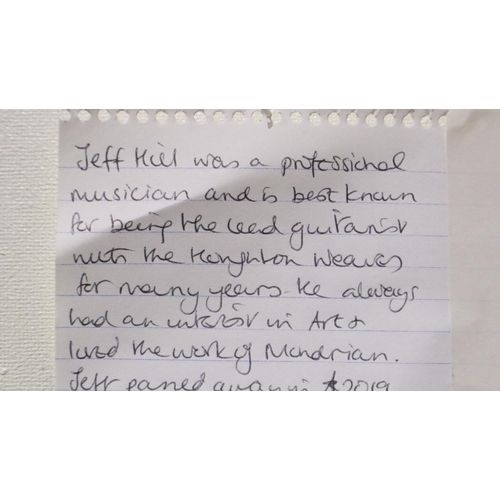 Jeff Hill was a professional
musician and is best known
for being the lead guitarist
with the Houghton Weavers
for many years. He always
had an interest in Art &
loved the work of Mondrian.
Jeff passed away in 2019